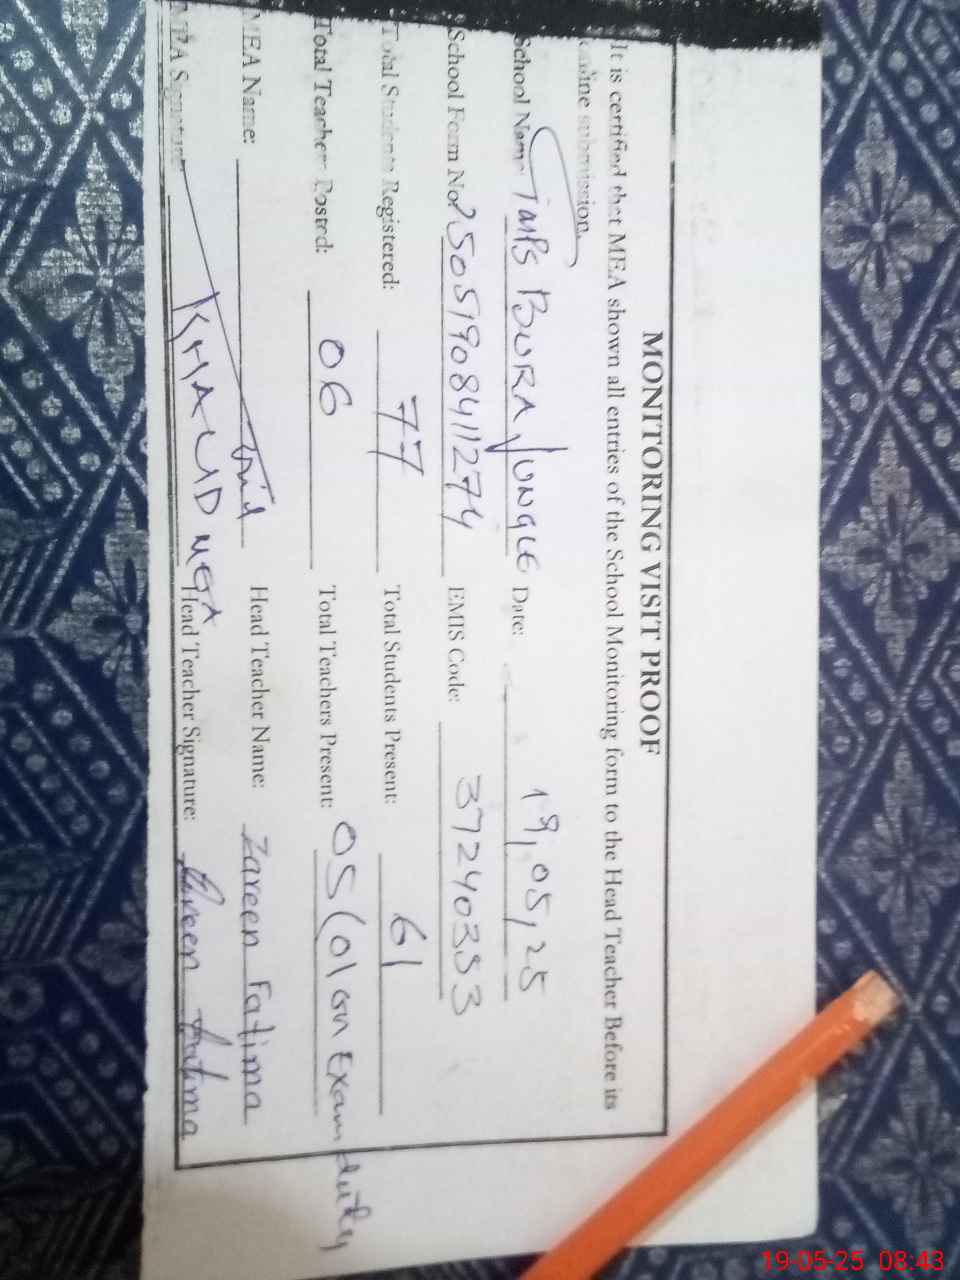 MONITORING VISIT PROOF
It is certified that MEA shown all entries of the School Monitoring form to the Head Teacher Before its
online submission.
School Name: GMPS BURA JUNGLE Date: 19,05,25
School Form No: 25051908411274 EMIS Code: 37240353
Total Students Registered: 77 Total Students Present: 61
Total Teacher Posted: 06 Total Teachers Present: 05 (01 on Exam duty
MEA Name: Head Teacher Name: Zareen Fatima
MEA Signature: KHALID MEA Head Teacher Signature: Zareen Fatima
19-05-25 08:43